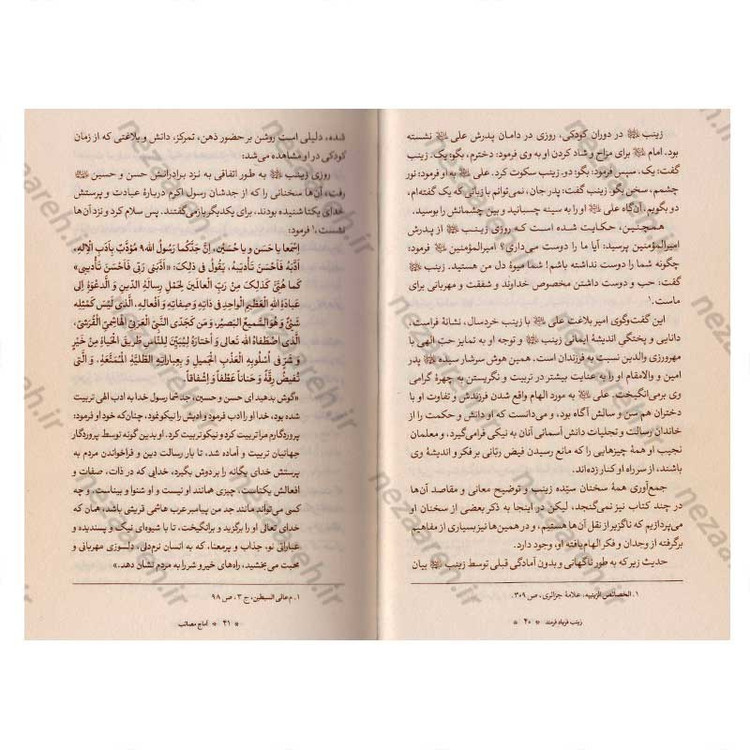 زینب ﷺ در دوران کودکی، روزی در دامان پدرش علی ﷺ نشسته
بود. امام ﷺ برای مزاح و شاد کردن او به وی فرمود: دخترم، بگو یک. زینب
گفت: یک، سپس فرمود: بگو دو. زینب سکوت کرد. علی ﷺ به او فرمود: نور
چشمم، سخن بگو. زینب گفت: پدر جان، نمی‌توانم با زبانی که یک گفته‌ام،
دو بگویم. آن‌گاه علی ﷺ او را به سینه چسبانید و بین چشمانش را بوسید.
همچنین، حکایت شده است که روزی زینب ﷺ از پدرش
امیرالمؤمنین پرسید: آیا ما را دوست می‌داری؟ امیرالمؤمنین ﷺ فرمود:
چگونه شما را دوست نداشته باشم! شما میوهٔ دل من هستید. زینب ﷺ
گفت: حب و دوست داشتن مخصوص خداوند و شفقت و مهربانی برای
ماست.۱
این گفت‌وگوی امیر بلاغت علی ﷺ با زینب خردسال، نشانهٔ فراست،
دانایی و پختگی اندیشهٔ ایمانی زینب ﷺ و توجه او به تمایز حب الهی با
مهرورزی والدین نسبت به فرزندان است. همین هوش سرشار سیده پدر
امین و والامقام او را به عنایت بیشتر در تربیت و نگریستن به چهرهٔ گرامی
وی برمی‌انگیخت. علی ﷺ به مورد الهام واقع شدن فرزندش و تفاوت او با
دختران هم سن و سالش آگاه بود، و می‌دانست که او دانش و حکمت را از
خاندان رسالت و تجلیات دانش آسمانی آنان به نیکی فرامی‌گیرد، و معلمان
نجیب او همهٔ چیزهایی را که مانع رسیدن فیض ربّانی بر فکر و اندیشهٔ وی
باشند، از سر راه او کنار زده‌اند.
جمع‌آوری همهٔ سخنان سیّده زینب و توضیح معانی و مقاصد آن‌ها
در چند کتاب نیز نمی‌گنجد، لیکن در اینجا به ذکر بعضی از سخنان او
می‌پردازیم که ناگزیر از نقل آن‌ها هستیم، و در همین‌ها نیز بسیاری از مفاهیم
برگرفته از وجدان و فکر الهام‌یافته او، وجود دارد.
حدیث زیر که به طور ناگهانی و بدون آمادگی قبلی توسط زینب ﷺ بیان
۱. الخصائص الزینبیه، علامهٔ جزائری، ص ۳۰۹.
زینب فریاد فرمند * ۴۰ *
شده، دلیلی است روشن بر حضور ذهن، تمرکز، دانش و بلاغتی که از زمان
کودکی در او مشاهده می‌شد:
روزی زینب ﷺ به طور اتفاقی به نزد برادرانش حسن و حسین ﷺ
رفت، آن‌ها سخنانی را که از جدشان رسول اکرم دربارهٔ عبادت و پرستش
خدای یکتا شنیده بودند، برای یکدیگر بازمی‌گفتند. پس سلام کرد و نزد آن‌ها
نشست،۱ فرمود:
اِسْمَعا یا حَسَن وَ یا حُسَین، اِنَّ جَدَّکُما رَسُولُ الله مُؤَدَّبٌ بِاَدَبِ الْاِلٰهِ،
اَدَّبَهُ فَاَحْسَنَ تَأْدیبَهُ، یَقُولُ فی ذٰلِکَ: «اَدَّبَنی رَبّی فَاَحْسَنَ تَأْدیبی»
کَما هُیِّیَ کَذٰلِکَ مِنْ رَبِّ الْعالَمینَ لِحَمْلِ رِسالَةِ الدّینِ وَ الدَّعْوَةِ اِلی
عِبادَةِ اللهِ الْعَظیمِ الْواحِدِ فی ذاتِهِ وَ صِفاتِهِ وَ اَفْعالِهِ، الَّذی لَیْسَ کَمِثْلِهِ
شَیْءٌ وَ هُوَ السَّمیعُ الْبَصیرُ، وَ مَن کَجَدّی النَّبیِّ الْعَرَبیِّ الْهاشِمیِّ الْقُرَشیِّ،
الَّذی اصْطَفاهُ اللهُ تَعالی وَ اخْتارَهُ لِیُبَیِّنَ لِلنّاسِ طَریقَ الْحَیاةِ مِنْ خَیْرٍ
وَ شَرٍّ فی اُسْلُوبِهِ الْعَذْبِ الْجَمیلِ وَ بِعِباراتِهِ الْمُمْتِعَةِ، وَ الَّتی
تُفیضُ رِقَّةً وَ حَناناً عَطْفاً وَ اِشْفاقاً.
«گوش بدهید ای حسن و حسین، جد شما رسول خدا به ادب الهی تربیت
شده بود، خدا او را ادب و ادبش را نیکو نمود، چنان‌که خود او فرمود:
پروردگارم مرا تربیت کرد و نیکو تربیت کرد. او بدین گونه توسط پروردگار
جهانیان تربیت و آماده شد، تا بار رسالت دین و فراخواندن مردم به
پرستش خدای یگانه را بر دوش بگیرد، خدایی که در ذات، صفات و
افعالش یکتاست، چیزی همانند او نیست و او شنوا و بیناست، و چه
کسی می‌تواند مانند جد من پیامبر عرب هاشمی قریشی باشد، همان که
خدای تعالی او را برگزید و برانگیخت، تا با شیوه‌ای نیک و پسندیده و
عباراتی نو، جذاب و پرمعنا، که به انسان نرم‌دلی، دلسوزی مهربانی و
محبت می‌بخشید، راه‌های خیر و شر را به مردم نشان دهد.»
۱. معالی السبطین، ج ۳، ص ۹۸
* ۴۱ * آماج مصائب
nezaareh.ir